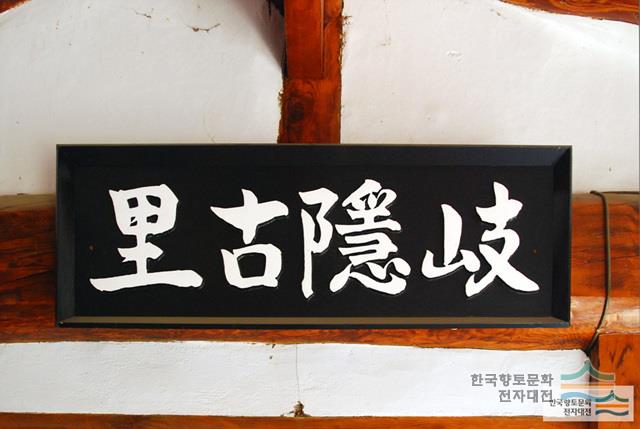 岐隱古里
한국향토문화
전자대전
한국향토문화
전자대전